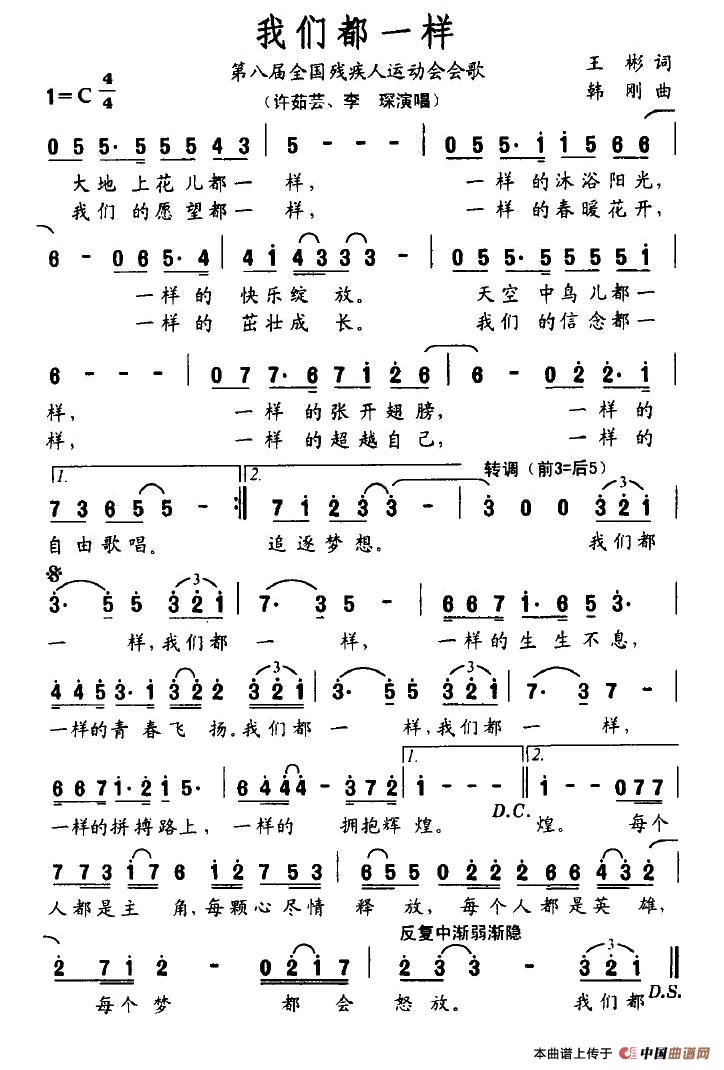 我们都一样
第八届全国残疾人运动会会歌
王 彬 词
1=C 4/4
(许茹芸、李 琛演唱)
韩 刚 曲
0 5 5· 5 5 5 4 3 | 5 - - - | 0 5 5· i i 5 6 6 |
大地 上花儿都一 样, 一样 的沐浴阳光,
我们 的愿望都一 样, 一样 的春暖花开,
6 - 0 6 5· 4 | 4 i 4 3 3 3 - | 0 5 5· 5 5 5 5 i |
一样的 快乐绽 放。 天空 中鸟儿都一
一样的 茁壮成 长。 我们 的信念都一
6 - - - | 0 7 7· 6 7 i 2 6 | 6 - 0 2 2· i |
样, 一样 的张开翅膀, 一样的
样, 一样 的超越自己, 一样的
1. 2. 转调(前3=后5)
7 3 6 5 5 5 - :‖ 7 i 2 3 3 - | 3 0 0 3 2 i |
自由歌唱。 追逐梦想。 我们都
3· 5 5 3 2 i | 7· 3 5 - | 6 6 7 i· 6 5 3· |
一 样,我们都 一 样, 一样的生生不息,
4 4 5 3· i 3 2 2 3 2 i | 3· 5 5 3 2 i | 7· 3 7 - |
一样的青春飞 扬。我们都 一 样,我们都 一 样,
1. 2.
6 6 7 i· 2 i 5· | 6 4 4 4 - 3 7 2 | i - - - ‖ i - - 0 7 7 |
一样的拼搏路上, 一样的 拥抱辉 煌。 D.C. 煌。 每个
7 7 3 i 7 6 | i 2 7 7 5 3 | 6 5 5 0 2 2 | 2 6 6 4 3 2 |
人都是主 角,每颗心尽情 释 放, 每个人都是英雄,
反复中渐弱渐隐
2 7 i 2 - | 0 2 i 7 | 2 3 3 - | 3 2 i ‖
每个梦 都 会 怒放。 我们都
D.S.
本曲谱上传于 中国曲谱网